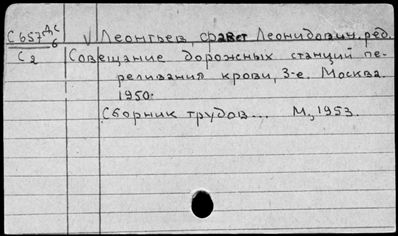 С657 ДС б V Леонтьев, Леонидович, ред.
С2 Совещание дорожных станций пе-
реливания крови, 3-е. Москва.
1950.
Сборник трудов... М., 1953.